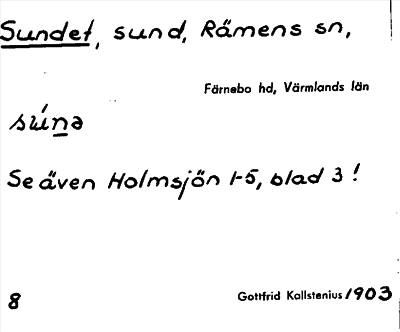 Sundet, sund, Rämens sn,
Färnebo hd, Värmlands län
súnə
Se även Holmsjön 1-5, blad 3!
8
Gottfrid Kallstenius 1903